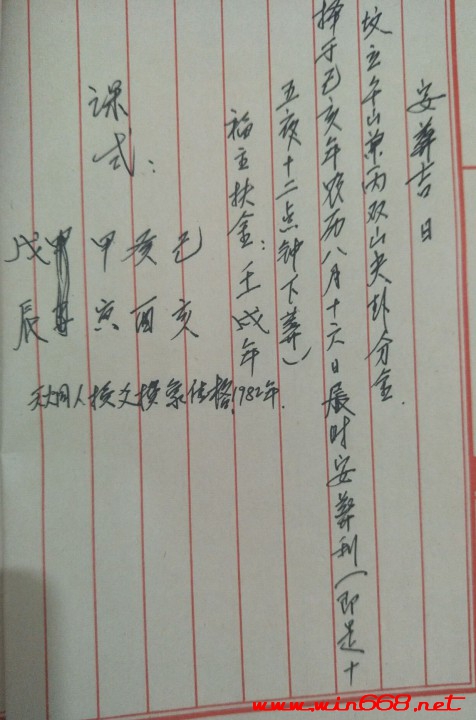 安葬吉日
坟立午山兼丙双山夬卦分金.
择于己亥年农历八月十六日辰时安葬利（即是十
五夜十二点钟下葬）
福主扶金：壬戌年
1982年.
课式：
己亥
癸酉
甲寅
戊辰
天火同人换爻换象佳格
www.win668.net